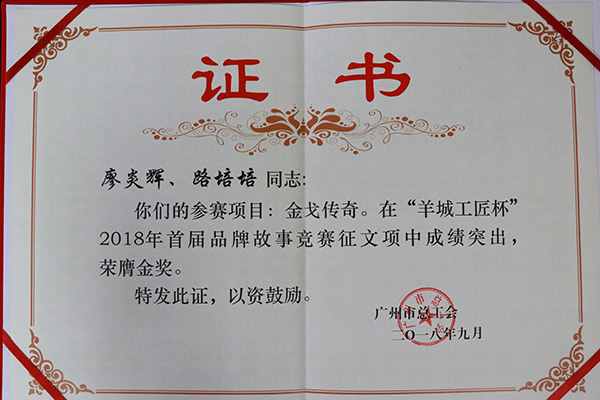 证书
廖炎辉、路培培 同志:
你们的参赛项目：金戈传奇。在“羊城工匠杯”
2018年首届品牌故事竞赛征文项中成绩突出，
荣膺金奖。
特发此证，以资鼓励。
广州市总工会
二〇一八年九月